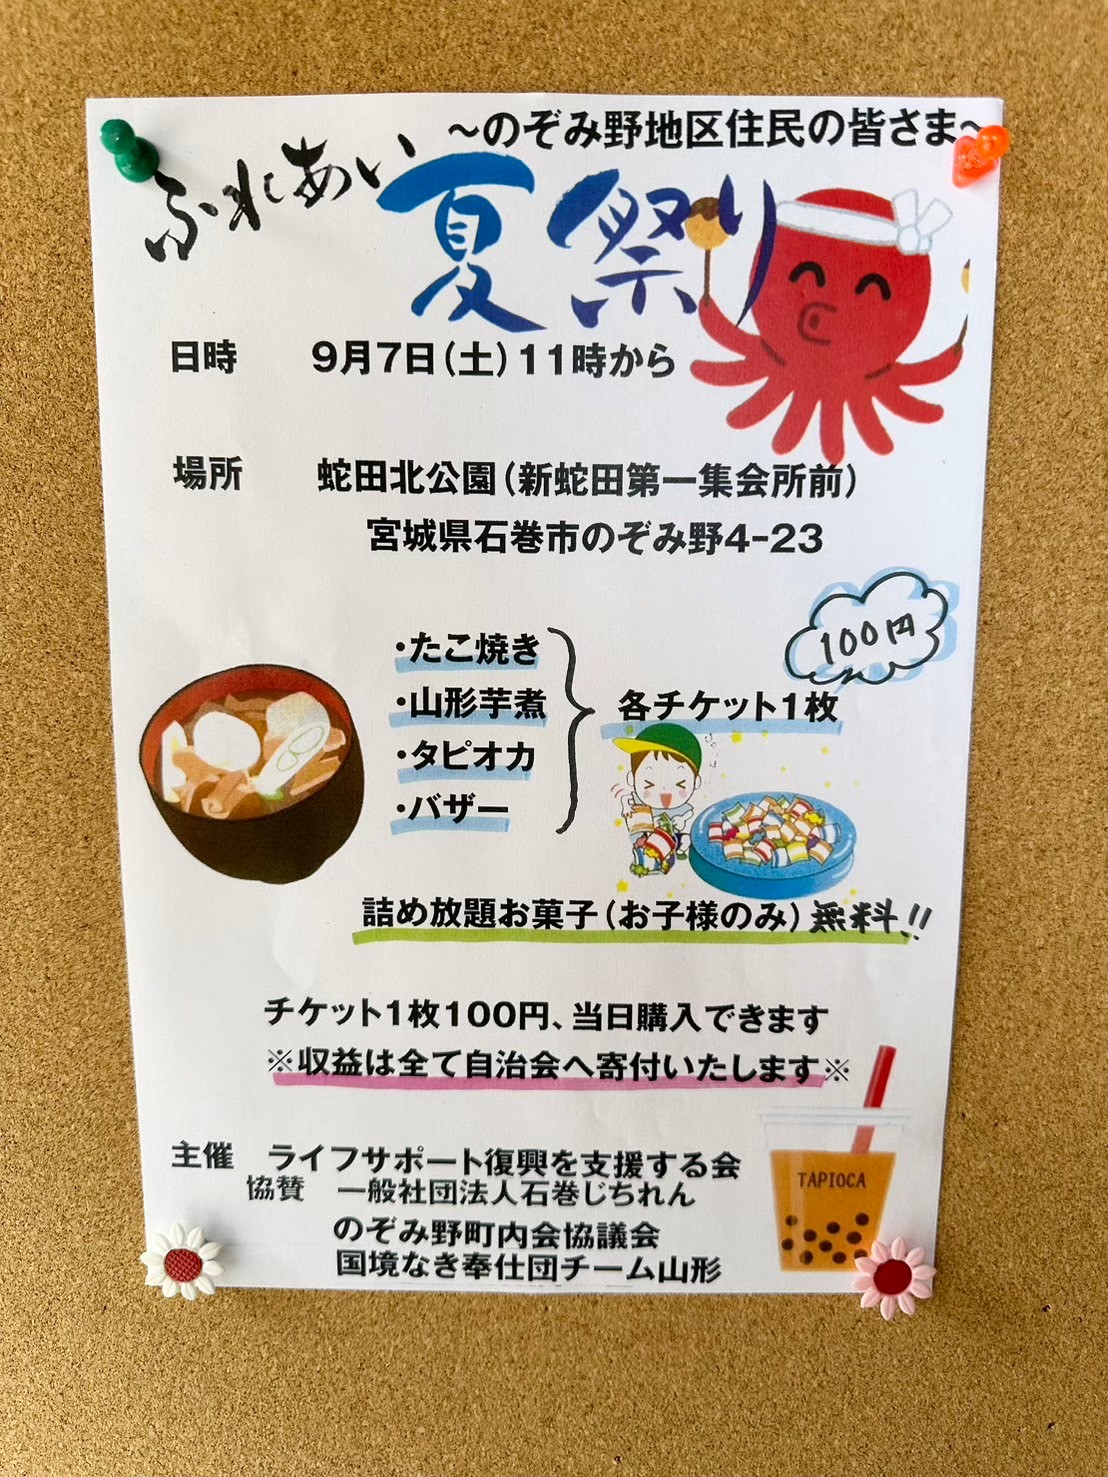 〜のぞみ野地区住民の皆さま〜
ふれあい夏祭り
日時 9月7日(土)11時から
場所 蛇田北公園(新蛇田第一集会所前)
宮城県石巻市のぞみ野4-23
100円
・たこ焼き
・山形芋煮
・タピオカ
・バザー
各チケット1枚
詰め放題お菓子(お子様のみ)無料!!
チケット1枚100円、当日購入できます
※収益は全て自治会へ寄付いたします※
主催 ライフサポート復興を支援する会
協賛 一般社団法人石巻じちれん
のぞみ野町内会協議会
国境なき奉仕団チーム山形
TAPIOCA